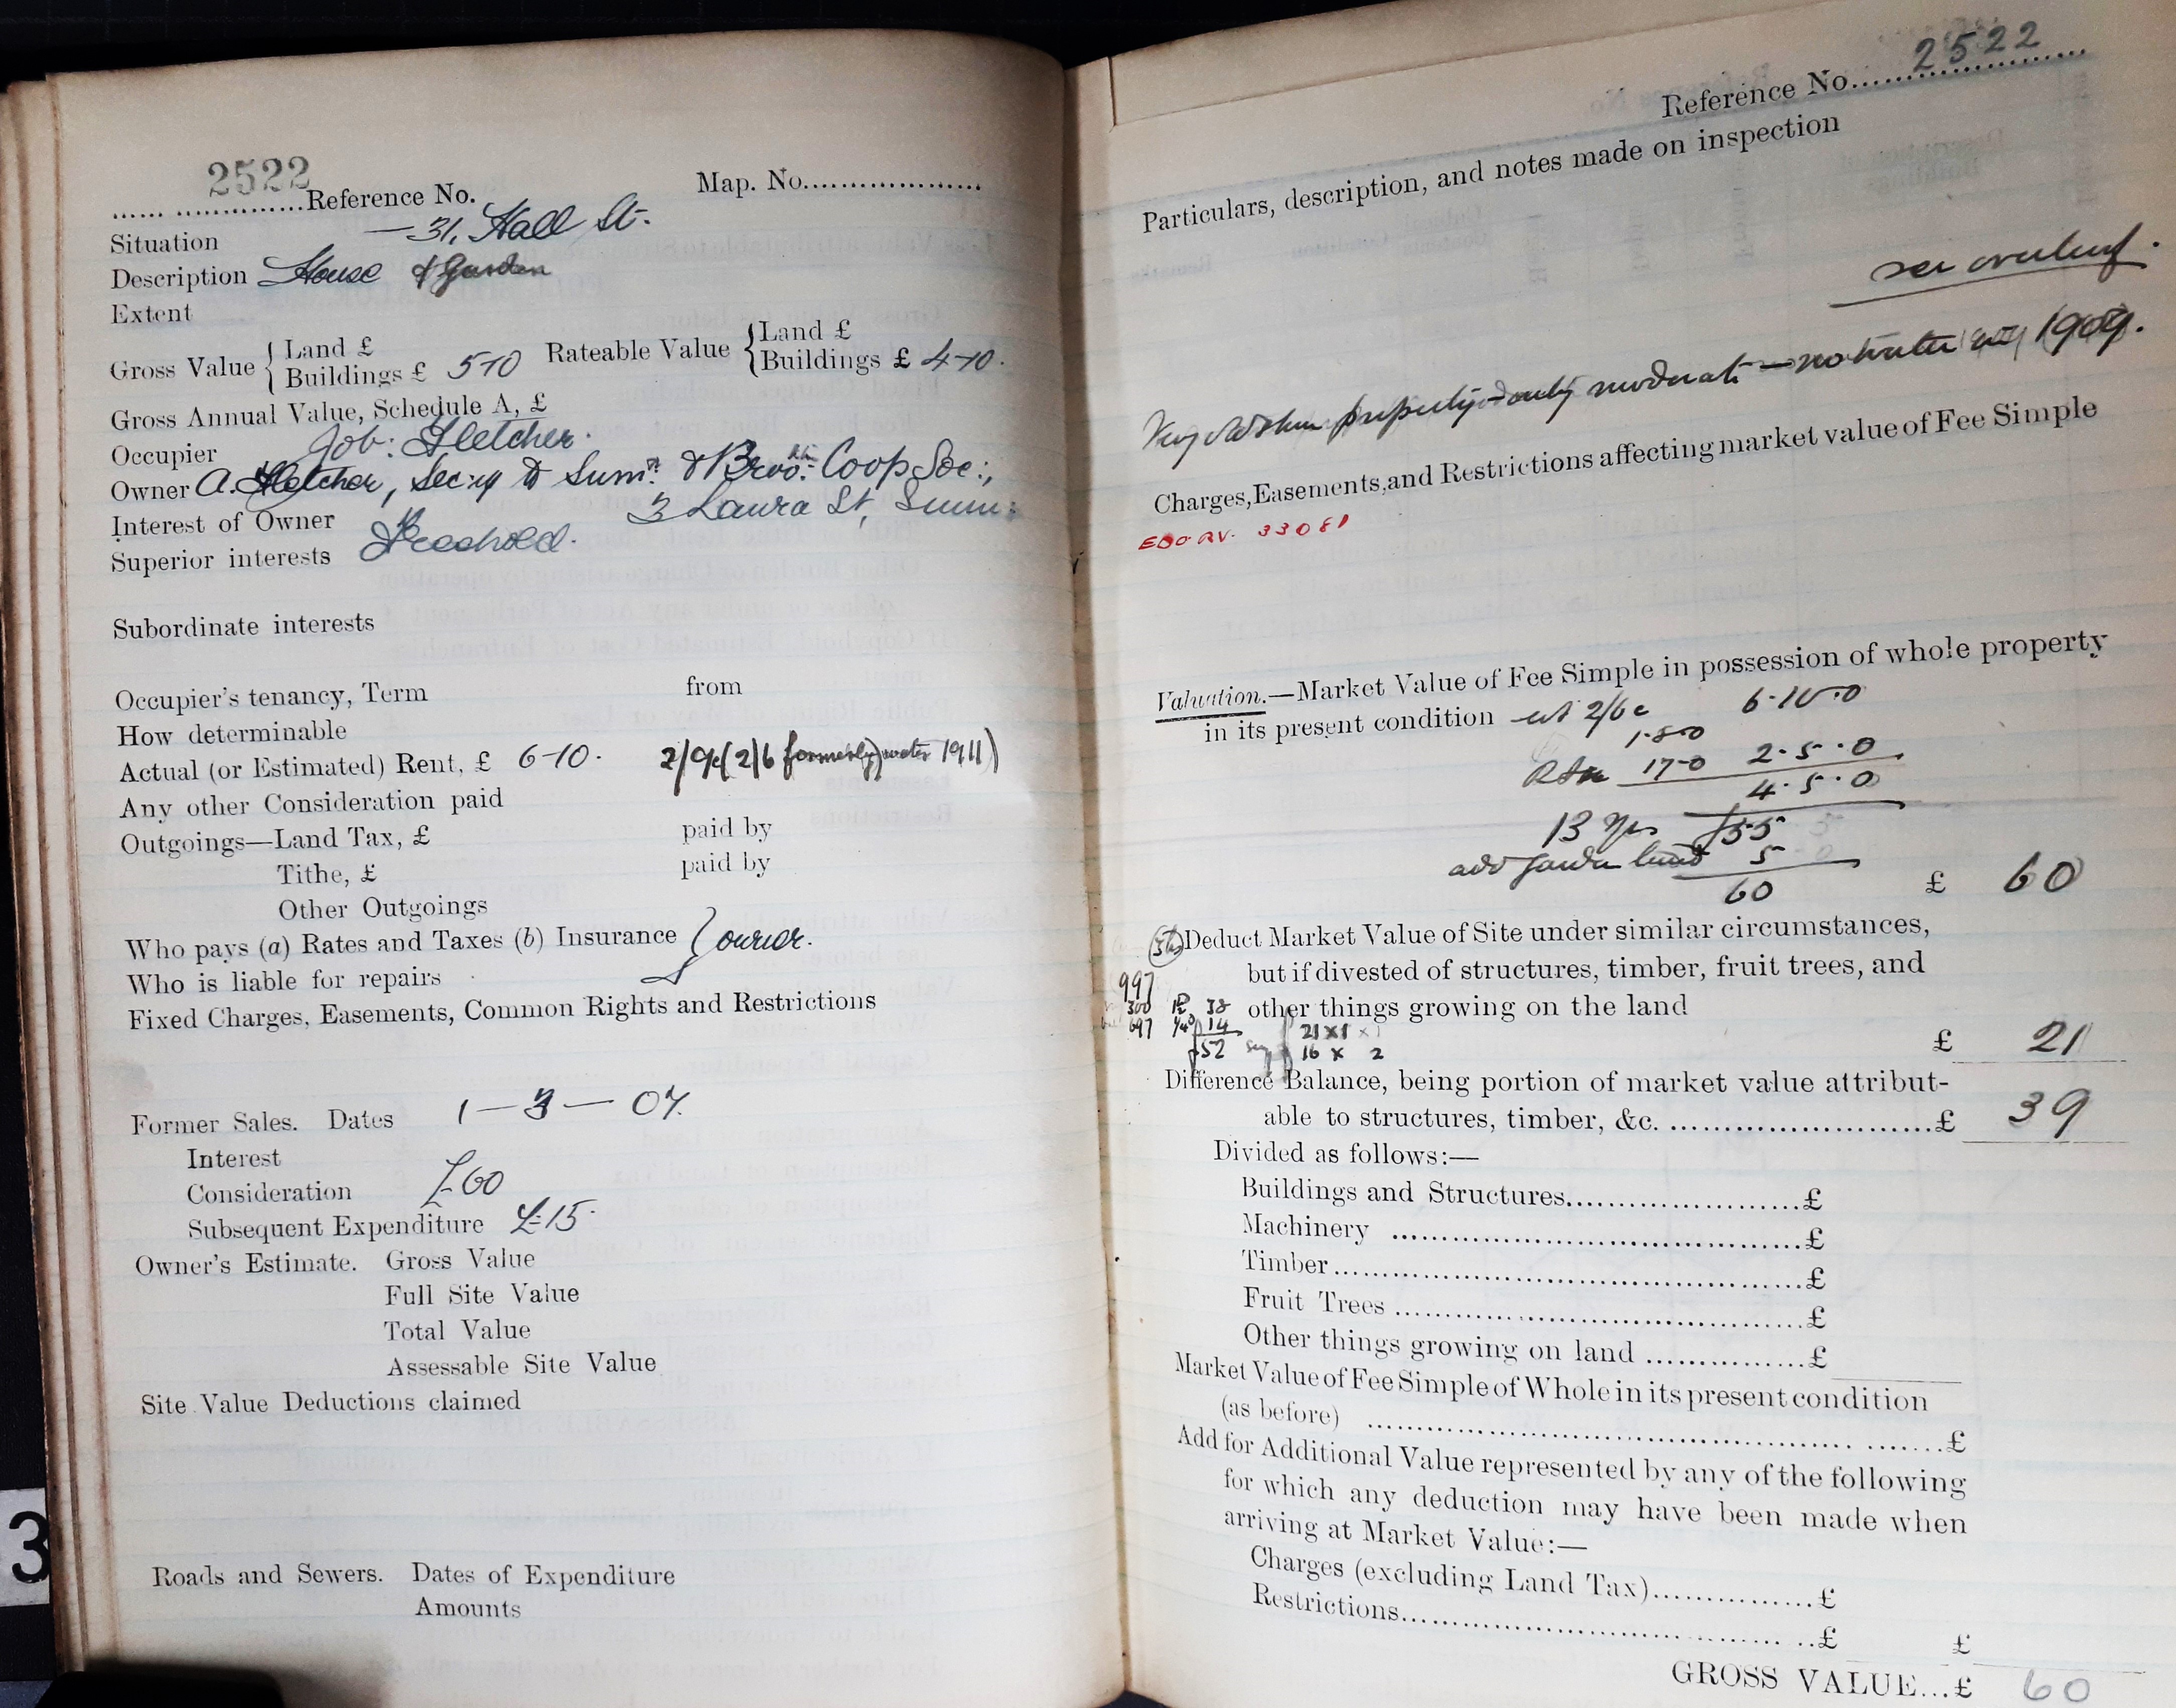 2522
...... ...............Reference No. Map. No....................
Situation — 31, Hall St.
Description House & Garden
Extent
Gross Value { Land £ Rateable Value { Land £
Buildings £ 5-10 Buildings £ 4-10.
Gross Annual Value, Schedule A, £
Occupier Job: Fletcher.
Owner A. Fletcher, Sec:y to Summt & Broo: Coop Soc:,
Interest of Owner 3 Laura St, Summ:
Superior interests Freehold.
Subordinate interests
Occupier's tenancy, Term from
How determinable
Actual (or Estimated) Rent, £ 6-10. 2/9 (2/6 formerly) water 1911)
Any other Consideration paid
Outgoings—Land Tax, £ paid by
Tithe, £ paid by
Other Outgoings
Who pays (a) Rates and Taxes (b) Insurance } owner.
Who is liable for repairs
Fixed Charges, Easements, Common Rights and Restrictions
Former Sales. Dates 1 — 3 — 07.
Interest
Consideration £60
Subsequent Expenditure £15
Owner's Estimate. Gross Value
Full Site Value
Total Value
Assessable Site Value
Site Value Deductions claimed
Roads and Sewers. Dates of Expenditure
Amounts
3
Reference No. 2522
Particulars, description, and notes made on inspection
see overleaf.
Very old stone property only moderate — no water in 1909.
Charges, Easements, and Restrictions affecting market value of Fee Simple
33081
Valuation.—Market Value of Fee Simple in possession of whole property
in its present condition let 2/6 6.10.0
1.8.0
17-0 2.5.0
4.5.0
13 yrs £55
add garden land 5
60 £ 60
Deduct Market Value of Site under similar circumstances,
but if divested of structures, timber, fruit trees, and
997
300 38 other things growing on the land
697 14 21 x 1
£52 16 x 2 £ 21
Difference Balance, being portion of market value attribut-
able to structures, timber, &c. ..........................£ 39
Divided as follows:—
Buildings and Structures......................£
Machinery .........................................£
Timber...............................................£
Fruit Trees .........................................£
Other things growing on land ...............£
Market Value of Fee Simple of Whole in its present condition
(as before) ..................................................... .......£
Add for Additional Value represented by any of the following
for which any deduction may have been made when
arriving at Market Value:—
Charges (excluding Land Tax)...............£
Restrictions.........................................£ £
GROSS VALUE...£ 60